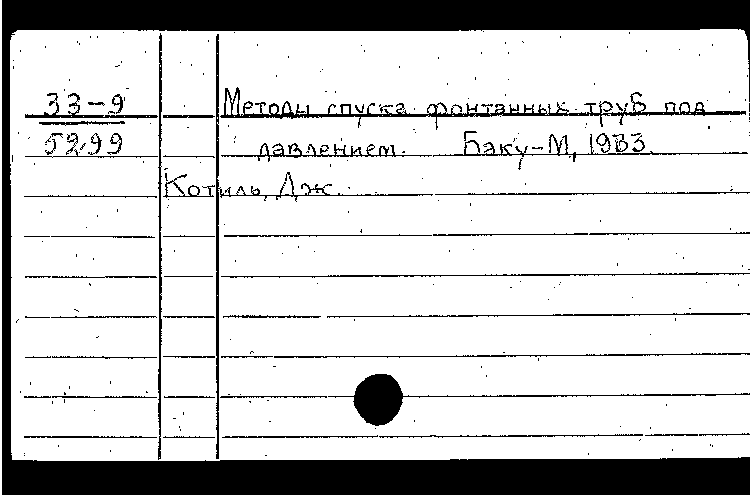 33-9
Методы спуска фонтанных труб под
5299
давлением. Баку-М, 1933.
Котиль, Дж.